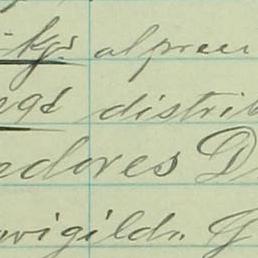 kgs alprecu
ngs distrib
edores D
wigildo. G